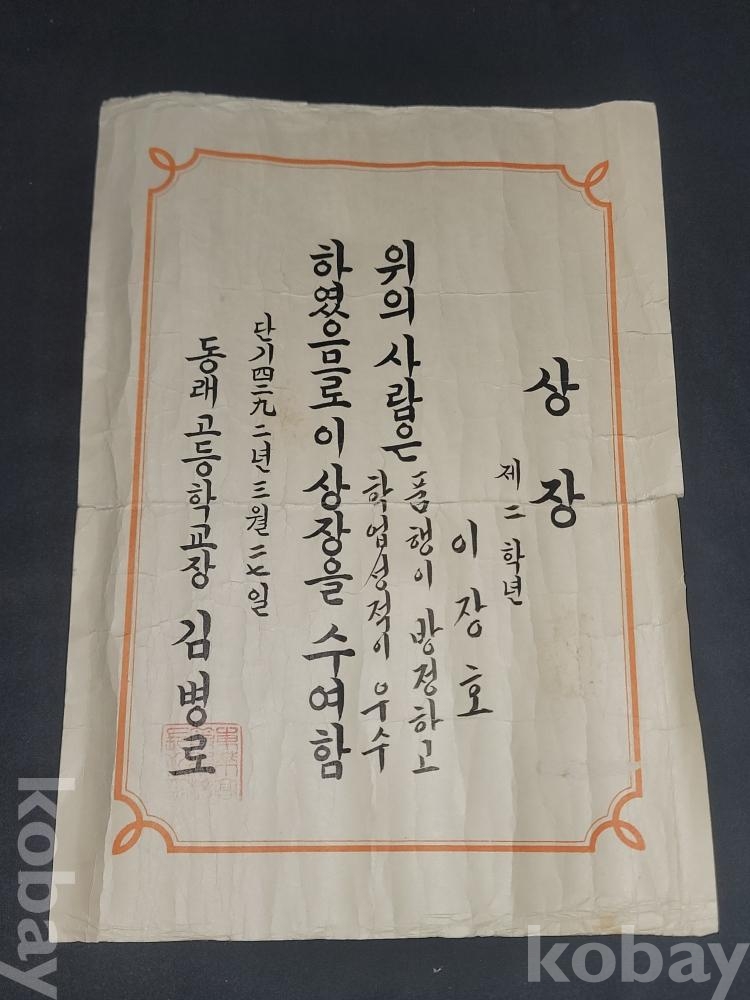 상장
제二학년
이장호
위의 사람은 품행이 방정하고
학업성적이 우수
하였으므로 이 상장을 수여함
단기四二九二년三월二七일
동래고등학교장 김병로
kobay
kobay